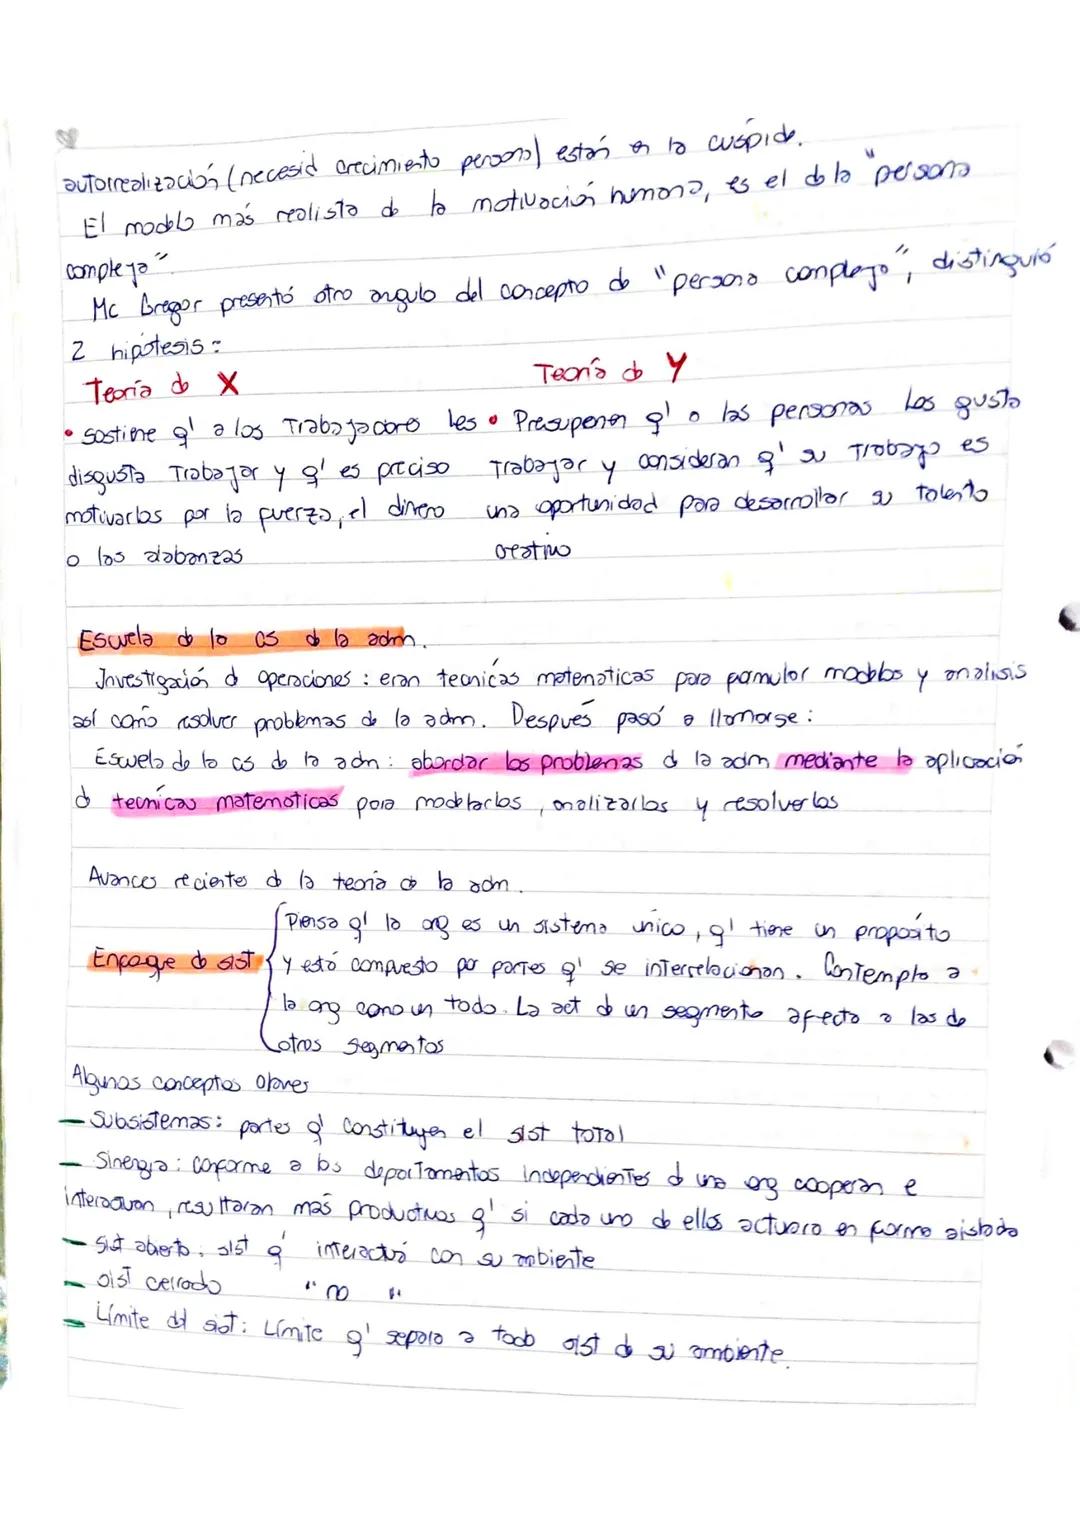 autorrealización (necesid crecimiento personal) están en la cúspide.
El modelo más realista de la motivación humana, es el de la "persona
compleja".
Mc Gregor presentó otro angulo del concepto de "persona compleja", distinguió
2 hipótesis:
Teoría de X
Teoría de Y
• sostiene q' a los Trabajadores les
disgusta Trabajar y q' es preciso
motivarlos por la fuerza, el dinero
o las alabanzas
• Presuponen q' a las personas les gusta
Trabajar y consideran q' su Trabajo es
una oportunidad para desarrollar su talento
creativo
Escuela de la cs de la adm.
Investigación d operaciones: eran tecnicas matematicas para formular modelos y analisis
así como resolver problemas de la adm. Después pasó a llamarse:
Escuela de la cs de la adm: abordar los problemas d la adm mediante la aplicación
d tecnicas matematicas para modelarlos, analizarlos y resolverlos
Avances recientes de la teoria de la adm.
Enfoque de sist
Piensa q' la org es un sistema único, q' tiene un proposito
y está compuesto por partes q' se interrelacionan. Contempla a
la org como un todo. La act de un segmento afecta a las de
otros segmentos
Algunos conceptos claves
- Subsistemas: partes q' constituyen el sist total
- Sinergia: conforme a los departamentos independientes d una org cooperan e
interactuan, resultaran más productivos q' si cada uno de ellos actuara en forma aislada
- Sist abierto: sist q' interactúa con su ambiente
- sist cerrado " no "
- Límite del sist: Límite q' separa a todo sist de su ambiente.